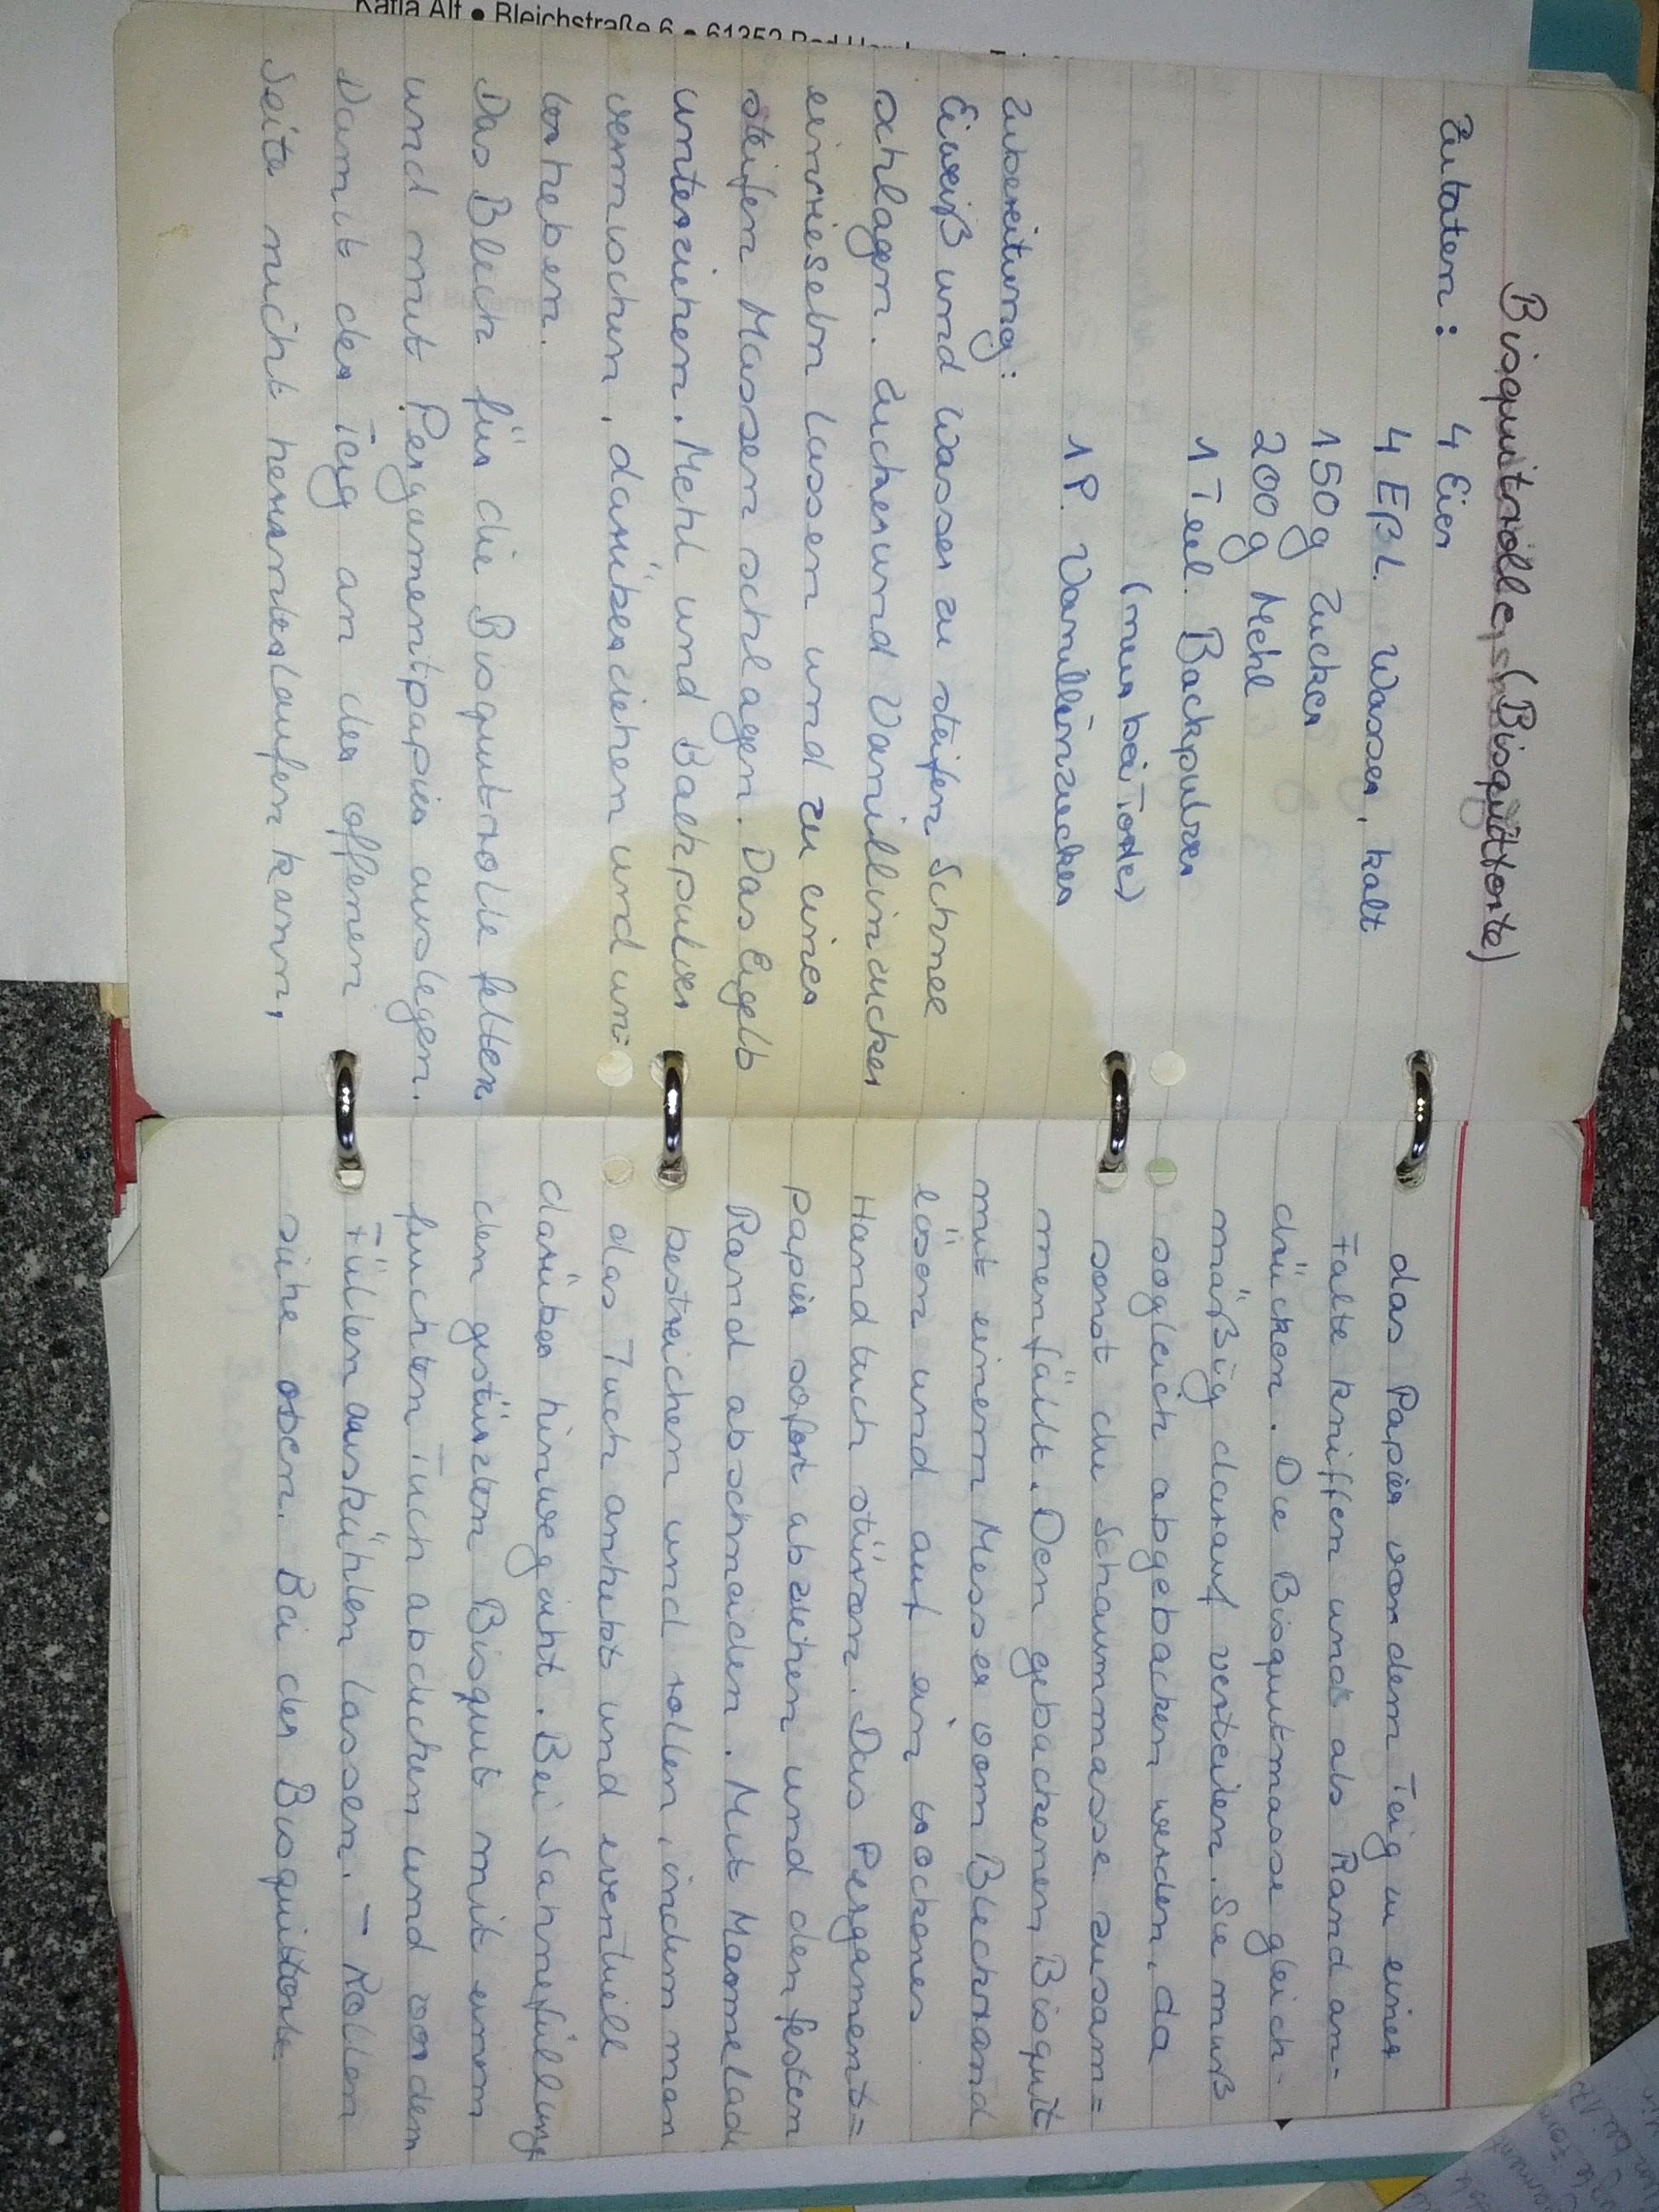 Katja Alt • Bleichstraße 6 • 61352 Bad
Bisquitrolle (Bisquittorte)
Zutaten: 4 Eier
4 Eßl. Wasser, kalt
150g Zucker
200g Mehl
1 Teel. Backpulver
(nur bei Torte)
1 P. Vanillinzucker
Zubereitung:
Eiweiß und Wasser zu steifen Schnee
schlagen. Zucker und Vanillinzucker
einrieseln lassen und zu einer
steifen Massen schlagen. Das Eigelb
unterziehen. Mehl und Backpulver
vermischen, darüber ziehen und un=
terheben.
Das Blech für die Bisquitrolle fetten
und mit Pergamentpapier auslegen.
Damit der Teig an der offenen
Seite nicht herunterlaufen kann,
das Papier vor dem Teig zu einer
Falte kniffen und als Rand an=
drücken. Die Bisquitmasse gleich-
mäßig darauf verteilen. Sie muß
sogleich abgebacken werden, da
sonst die Schaummasse zusam=
menfällt. Den gebackenen Bisquit
mit einem Messer vom Blechrand
lösen und auf ein trockenes
Handtuch stürzen. Das Pergament=
papier sofort abziehen und den festen
Rand abschneiden. Mit Marmelade
bestreichen und rollen, indem man
das Tuch anhebt und eventuell
darüber hinwegzieht. Bei Sahnefüllung
den gestürzten Bisquit mit einem
feuchten Tuch abdecken und vor dem
Füllen auskühlen lassen. – Rollen
siehe oben. Bei der Bisquittorte